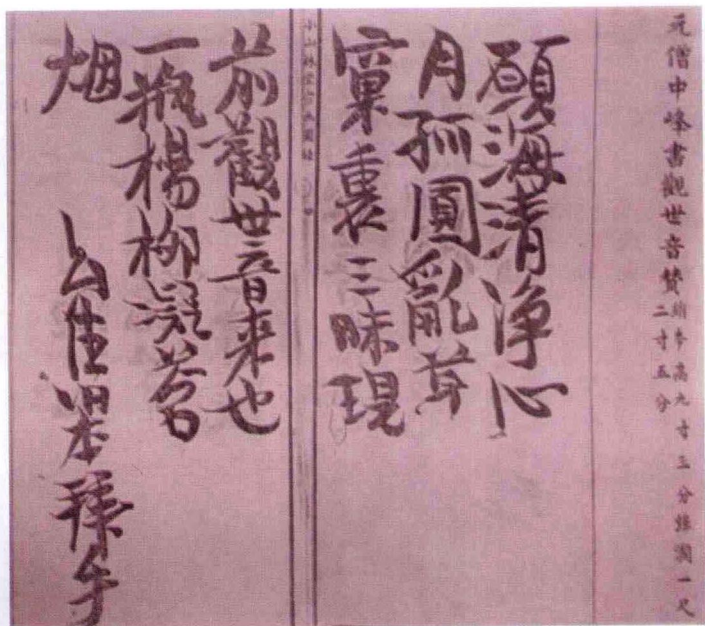 元僧中峰書觀世音贊
絹本高九寸五分強濶一尺
二寸五分
願海清淨心
月孤圓亂草
窠裏三昧現
前觀世音来也
一瓶楊柳凝蒼
烟 幻住明本拜手